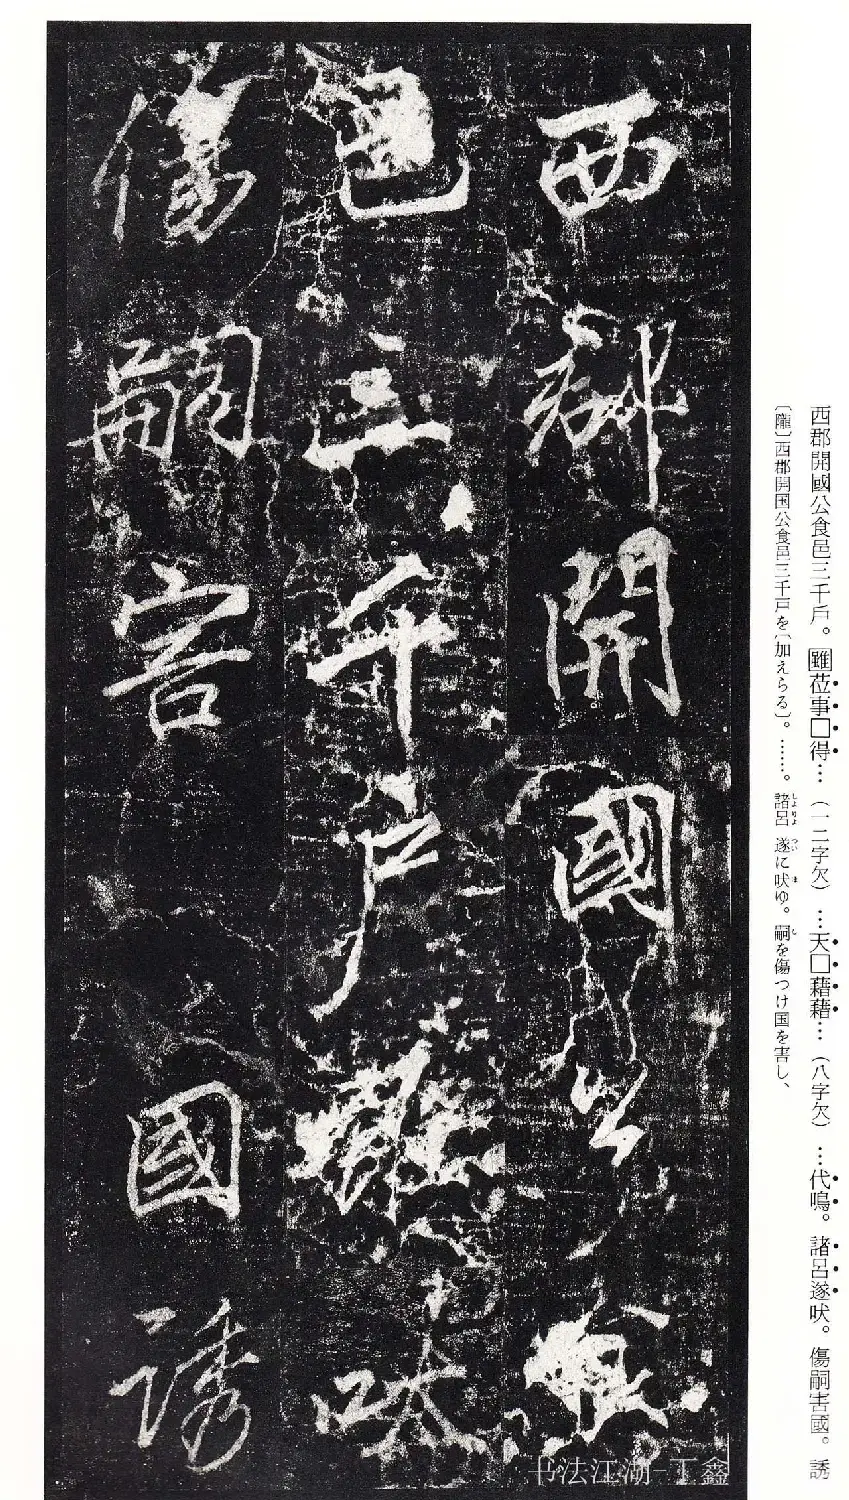 西郡開國公食邑三千戶。雖莅事□得…（一二字欠）…天□藉藉…（八字欠）…代鳴。諸呂遂吠。傷嗣害國。誘
〔隴〕西郡開国公食邑三千戸を〔加えらる〕。……。諸呂遂に吠ゆ。嗣を傷つけ国を害し、
西郡開國公食
邑三千戶雖吠
傷嗣害國誘
书法江湖-丁鑫